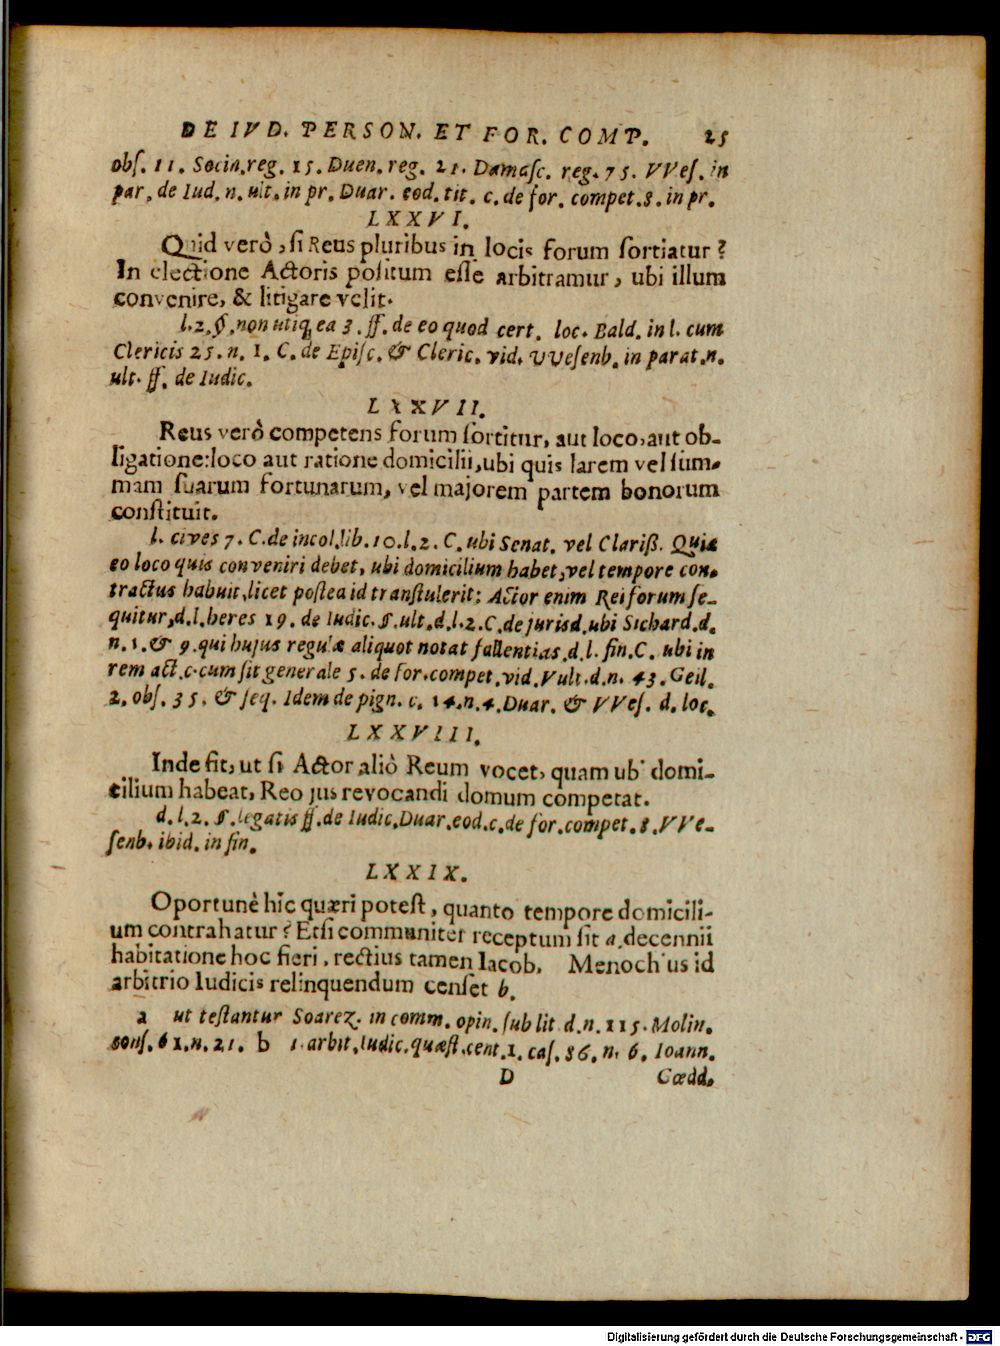 DE IVD. PERSON. ET FOR. COMP. 25
obſ. 11. Socin. reg. 15. Duen. reg. 21. Damaſc. reg. 75. VVeſ. in
par. de Iud. n. ult. in pr. Duar. eod. tit. c. de for. compet. 8. in pr.
LXXVI.
Quid verò, ſi Reus pluribus in locis forum ſortiatur?
In electione Actoris poſitum eſſe arbitramur, ubi illum
convenire, & litigare velit.
l. 2. §. non utiq; ea 3. ff. de eo quod cert. loc. Bald. in l. cum
Clericis 25. n. 1. C. de Epiſc. & Cleric. vid. VVeſenb. in parat. n.
ult. ff. de Iudic.
LXXVII.
Reus verò competens forum ſortitur, aut loco, aut ob-
ligatione: loco aut ratione domicilii, ubi quis larem vel ſum-
mam ſuarum fortunarum, vel majorem partem bonorum
conſtituit.
l. cives 7. C. de incol. lib. 10. l. 2. C. ubi Senat. vel Clariß. Quia
eo loco quis conveniri debet, ubi domicilium habet, vel tempore con-
tractus habuit, licet poſtea id tranſtulerit: Actor enim Rei forum ſe-
quitur, d. l. heres 19. de Iudic. §. ult. d. l. 2. C. de jurisd. ubi Sichard. d.
n. 1. & 9. qui hujus regulæ aliquot notat fallentias. d. l. fin. C. ubi in
rem act. c. cum ſit generale 5. de for. compet. vid. Vult. d. n. 43. Geil.
2. obſ. 35. & ſeq. Idem de pign. c. 14. n. 4. Duar. & VVeſ. d. loc.
LXXVIII.
Inde fit, ut ſi Actor aliò Reum vocet, quam ubi domi-
cilium habeat, Reo jus revocandi domum competat.
d. l. 2. §. legatis ff. de Iudic. Duar. eod. c. de for. compet. 8. VVe-
ſenb. ibid. in fin.
LXXIX.
Oportunè hîc quæri poteſt, quanto tempore domicili-
um contrahatur? Etſi communiter receptum ſit a, decennii
habitatione hoc fieri, rectius tamen Iacob. Menochius id
arbitrio Iudicis relinquendum cenſet b.
a ut teſtantur Soarez. in comm. opin. ſub lit d. n. 115. Molin.
conſ. 61. n. 21. b 1. arbit. Iudic. quæſt. cent. 1. caſ. 86. n. 6. Ioann.
D Gœdd.
Digitalisierung gefördert durch die Deutsche Forschungsgemeinschaft - DFG